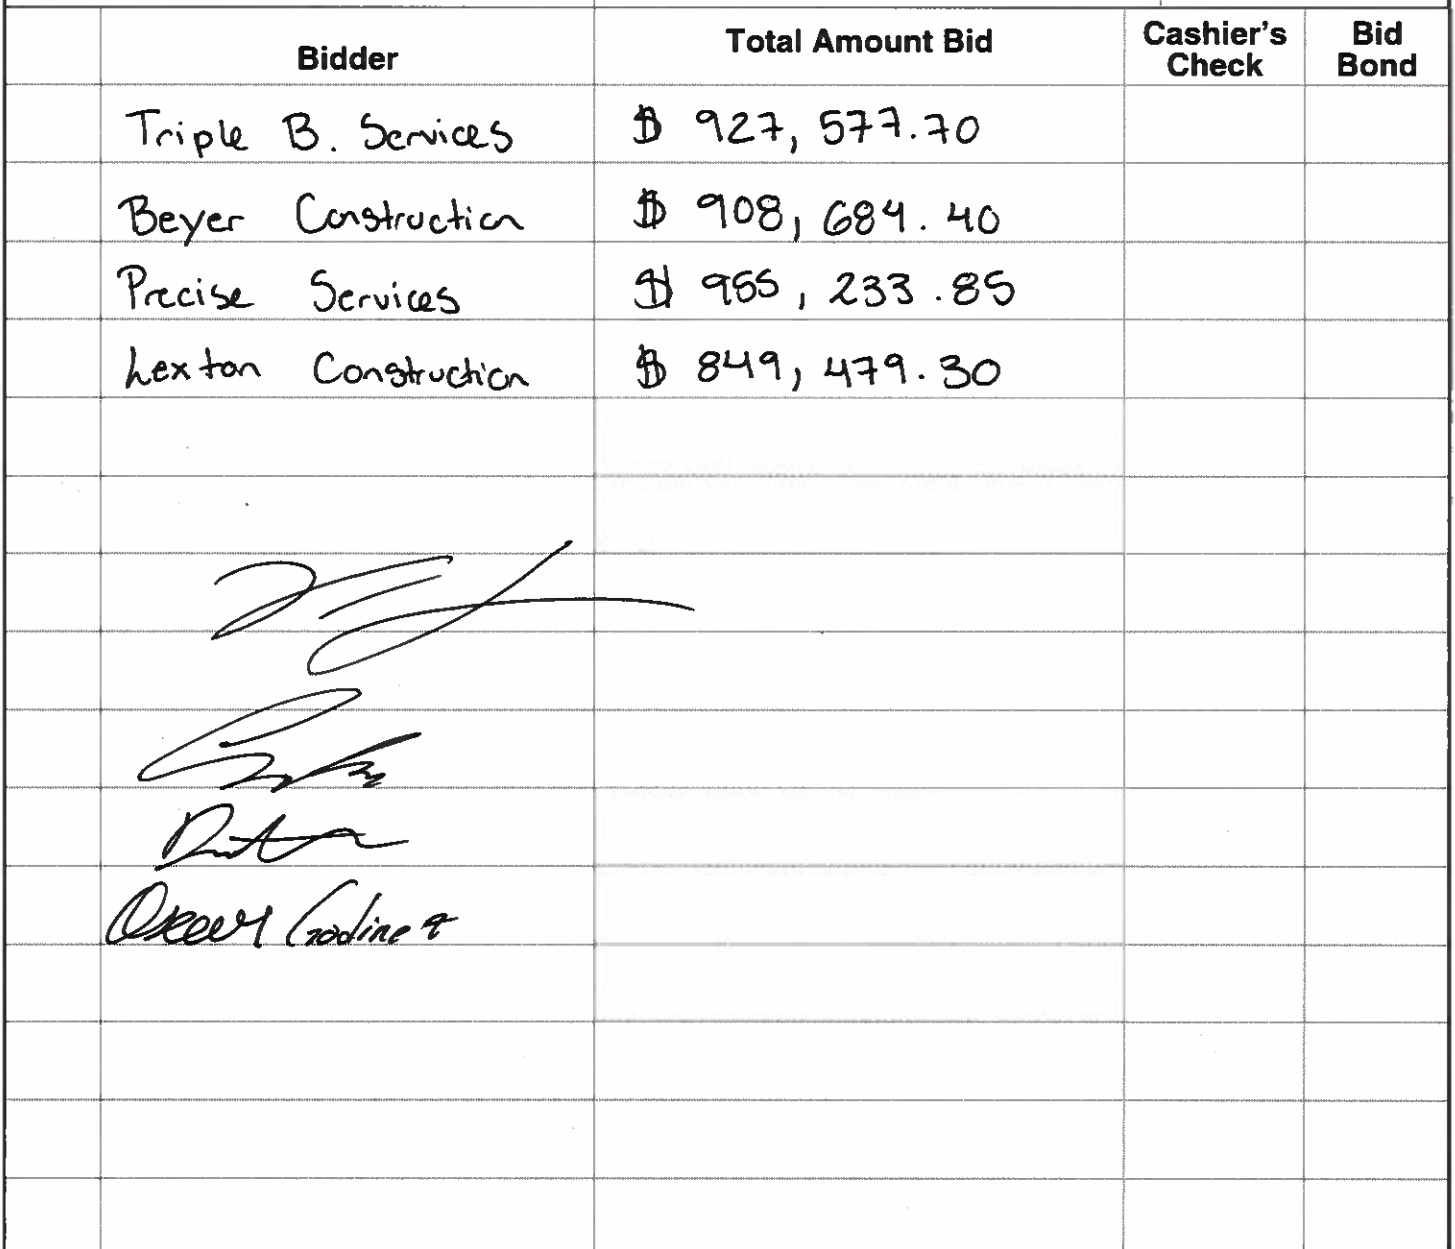 Bidder Total Amount Bid Cashier's Check Bid Bond
Triple B. Services $ 927, 577.70
Beyer Construction $ 908, 684.40
Precise Services $ 955, 233.85
Lexton Construction $ 849, 479.30
Godinez